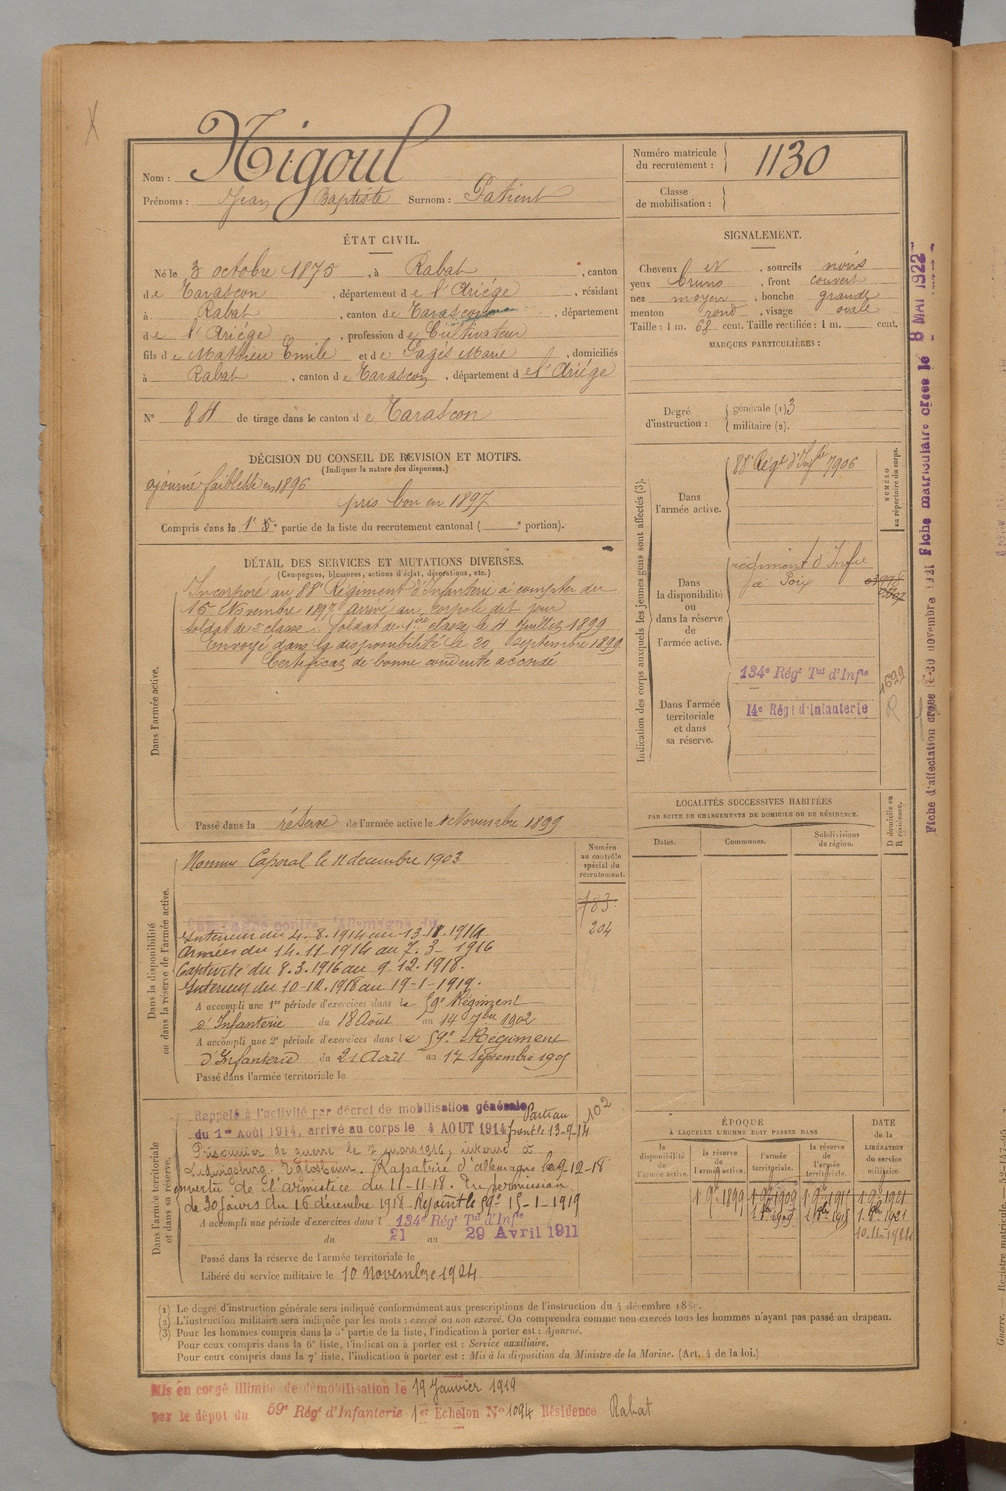 Nom : Nigoul
Prénoms : Jean Baptiste Surnom : Patient
Numéro matricule du recrutement : 1130
Classe de mobilisation :
ÉTAT CIVIL.
Né le 3 octobre 1875, à Rabat, canton
de Tarascon, département de l'Ariége, résidant
à Rabat, canton de Tarascon, département
de l'Ariége, profession de Cultivateur
fils de Mathieu Emile et de Pagés Marie, domiciliés
à Rabat, canton de Tarascon, département de l'Ariége
N° 84 de tirage dans le canton de Tarascon
SIGNALEMENT.
Cheveux et N, sourcils noirs
yeux bruns, front couvert
nez moyen, bouche grande
menton rond, visage ovale
Taille : 1 m. 68 cent. Taille rectifiée : 1 m. cent.
MARQUES PARTICULIÈRES :
Degré d'instruction : générale (1) 3
militaire (2).
DÉCISION DU CONSEIL DE REVISION ET MOTIFS.
(Indiquer la nature des dispenses.)
ajourné faiblesse en 1896
pris bon en 1897
Compris dans la 1e 5e partie de la liste du recrutement cantonal ( e portion).
DÉTAIL DES SERVICES ET MUTATIONS DIVERSES.
(Campagnes, blessures, actions d'éclat, décorations, etc.)
Dans l'armée active.
Incorporé au 88e Régiment d'Infanterie à compter du
15 Novembre 1897 arrivé au corps le dit jour
soldat de 2e classe. Soldat de 1ère classe le 4 Juillet 1899
Envoyé dans la disponibilité le 20 septembre 1899
Certificat de bonne conduite accordé
Passé dans la réserve de l'armée active le 1 Novembre 1899
Indication des corps auxquels les jeunes gens sont affectés (3).
NUMÉRO au répertoire du corps.
Dans l'armée active.
88e Régt d'Infie 7906
Dans la disponibilité ou dans la réserve de l'armée active.
régiment d'Infie
de Foix
Dans l'armée territoriale et dans sa réserve.
134e Régt Tal d'Infie
14e Régt d'Infanterie
4622
LOCALITÉS SUCCESSIVES HABITÉES
PAR SUITE DE CHANGEMENTS DE DOMICILE OU DE RÉSIDENCE.
Dates. Communes. Subdivisions de région. D domicile ou R résidence.
Dans la disponibilité ou dans la réserve de l'armée active.
Numéro au contrôle spécial du recrutement.
183
204
Nommé Caporal le 11 decembre 1903
Campagne contre l'Allemagne du
Interieur du 4.8.1914 au 13.18.1914
Armées du 14.11-1914 au 7.3-1916
Captivité du 8.3.1916 au 9.12.1918.
Interieur du 10-12.1918 au 19-1-1919.
A accompli une 1re période d'exercices dans le 59e Régiment
d'Infanterie du 18 Août au 14 7bre 1902
A accompli une 2e période d'exercices dans le 59e Régiment
d'Infanterie du 21 Août au 17 septembre 1905
Passé dans l'armée territoriale le
Dans l'armée territoriale et dans sa réserve.
Rappelé à l'activité par décret de mobilisation générale
du 1er Août 1914, arrivé au corps le 4 AOUT 1914 Parti au front le 13-9-14
102
Prisonnier de guerre le 7 mars 1916, interné à
Ludwigsburg. Eglosheim. Rapatrié d'allemagne le 9-12-18
en vertu de l'armistice du 11-11-18. En permission
de 30 jours du 16 décembre 1918. Rejoint le 59e 15-1-1919
A accompli une période d'exercices dans l 134e Régt Tal d'Infie
du 21 au 29 Avril 1911
Passé dans la réserve de l'armée territoriale le
Libéré du service militaire le 10 novembre 1924
ÉPOQUE À LAQUELLE L'HOMME DOIT PASSER DANS
la disponibilité de l'armée active. la réserve de l'armée active. l'armée territoriale. la réserve de l'armée territoriale.
DATE de la LIBÉRATION du service militaire.
1 9e 1899 1 9e 1909 1 9e 1915 1 9e 1921
1.8bre 1909 1.8bre 1915 1.8bre 1921
10.11-1924
(1) Le degré d'instruction générale sera indiqué conformément aux prescriptions de l'instruction du 4 décembre 188 .
(2) L'instruction militaire sera indiquée par les mots : exercé ou non exercé. On comprendra comme non exercés tous les hommes n'ayant pas passé au drapeau.
(3) Pour les hommes compris dans la 5e partie de la liste, l'indication à porter est : Ajourné.
Pour ceux compris dans la 6e liste, l'indication à porter est : Service auxiliaire.
Pour ceux compris dans la 7e liste, l'indication à porter est : Mis à la disposition du Ministre de la Marine. (Art. 4 de la loi.)
Mis en congé illimité de démobilisation le 19 Janvier 1919
par le dépôt du 59e Régt d'Infanterie 1er Echelon N° 1094 Résidence Rabat
Fiche d'affectation créée le 30 novembre 1921 Fiche matriculaire créée le 8 MAI 1922